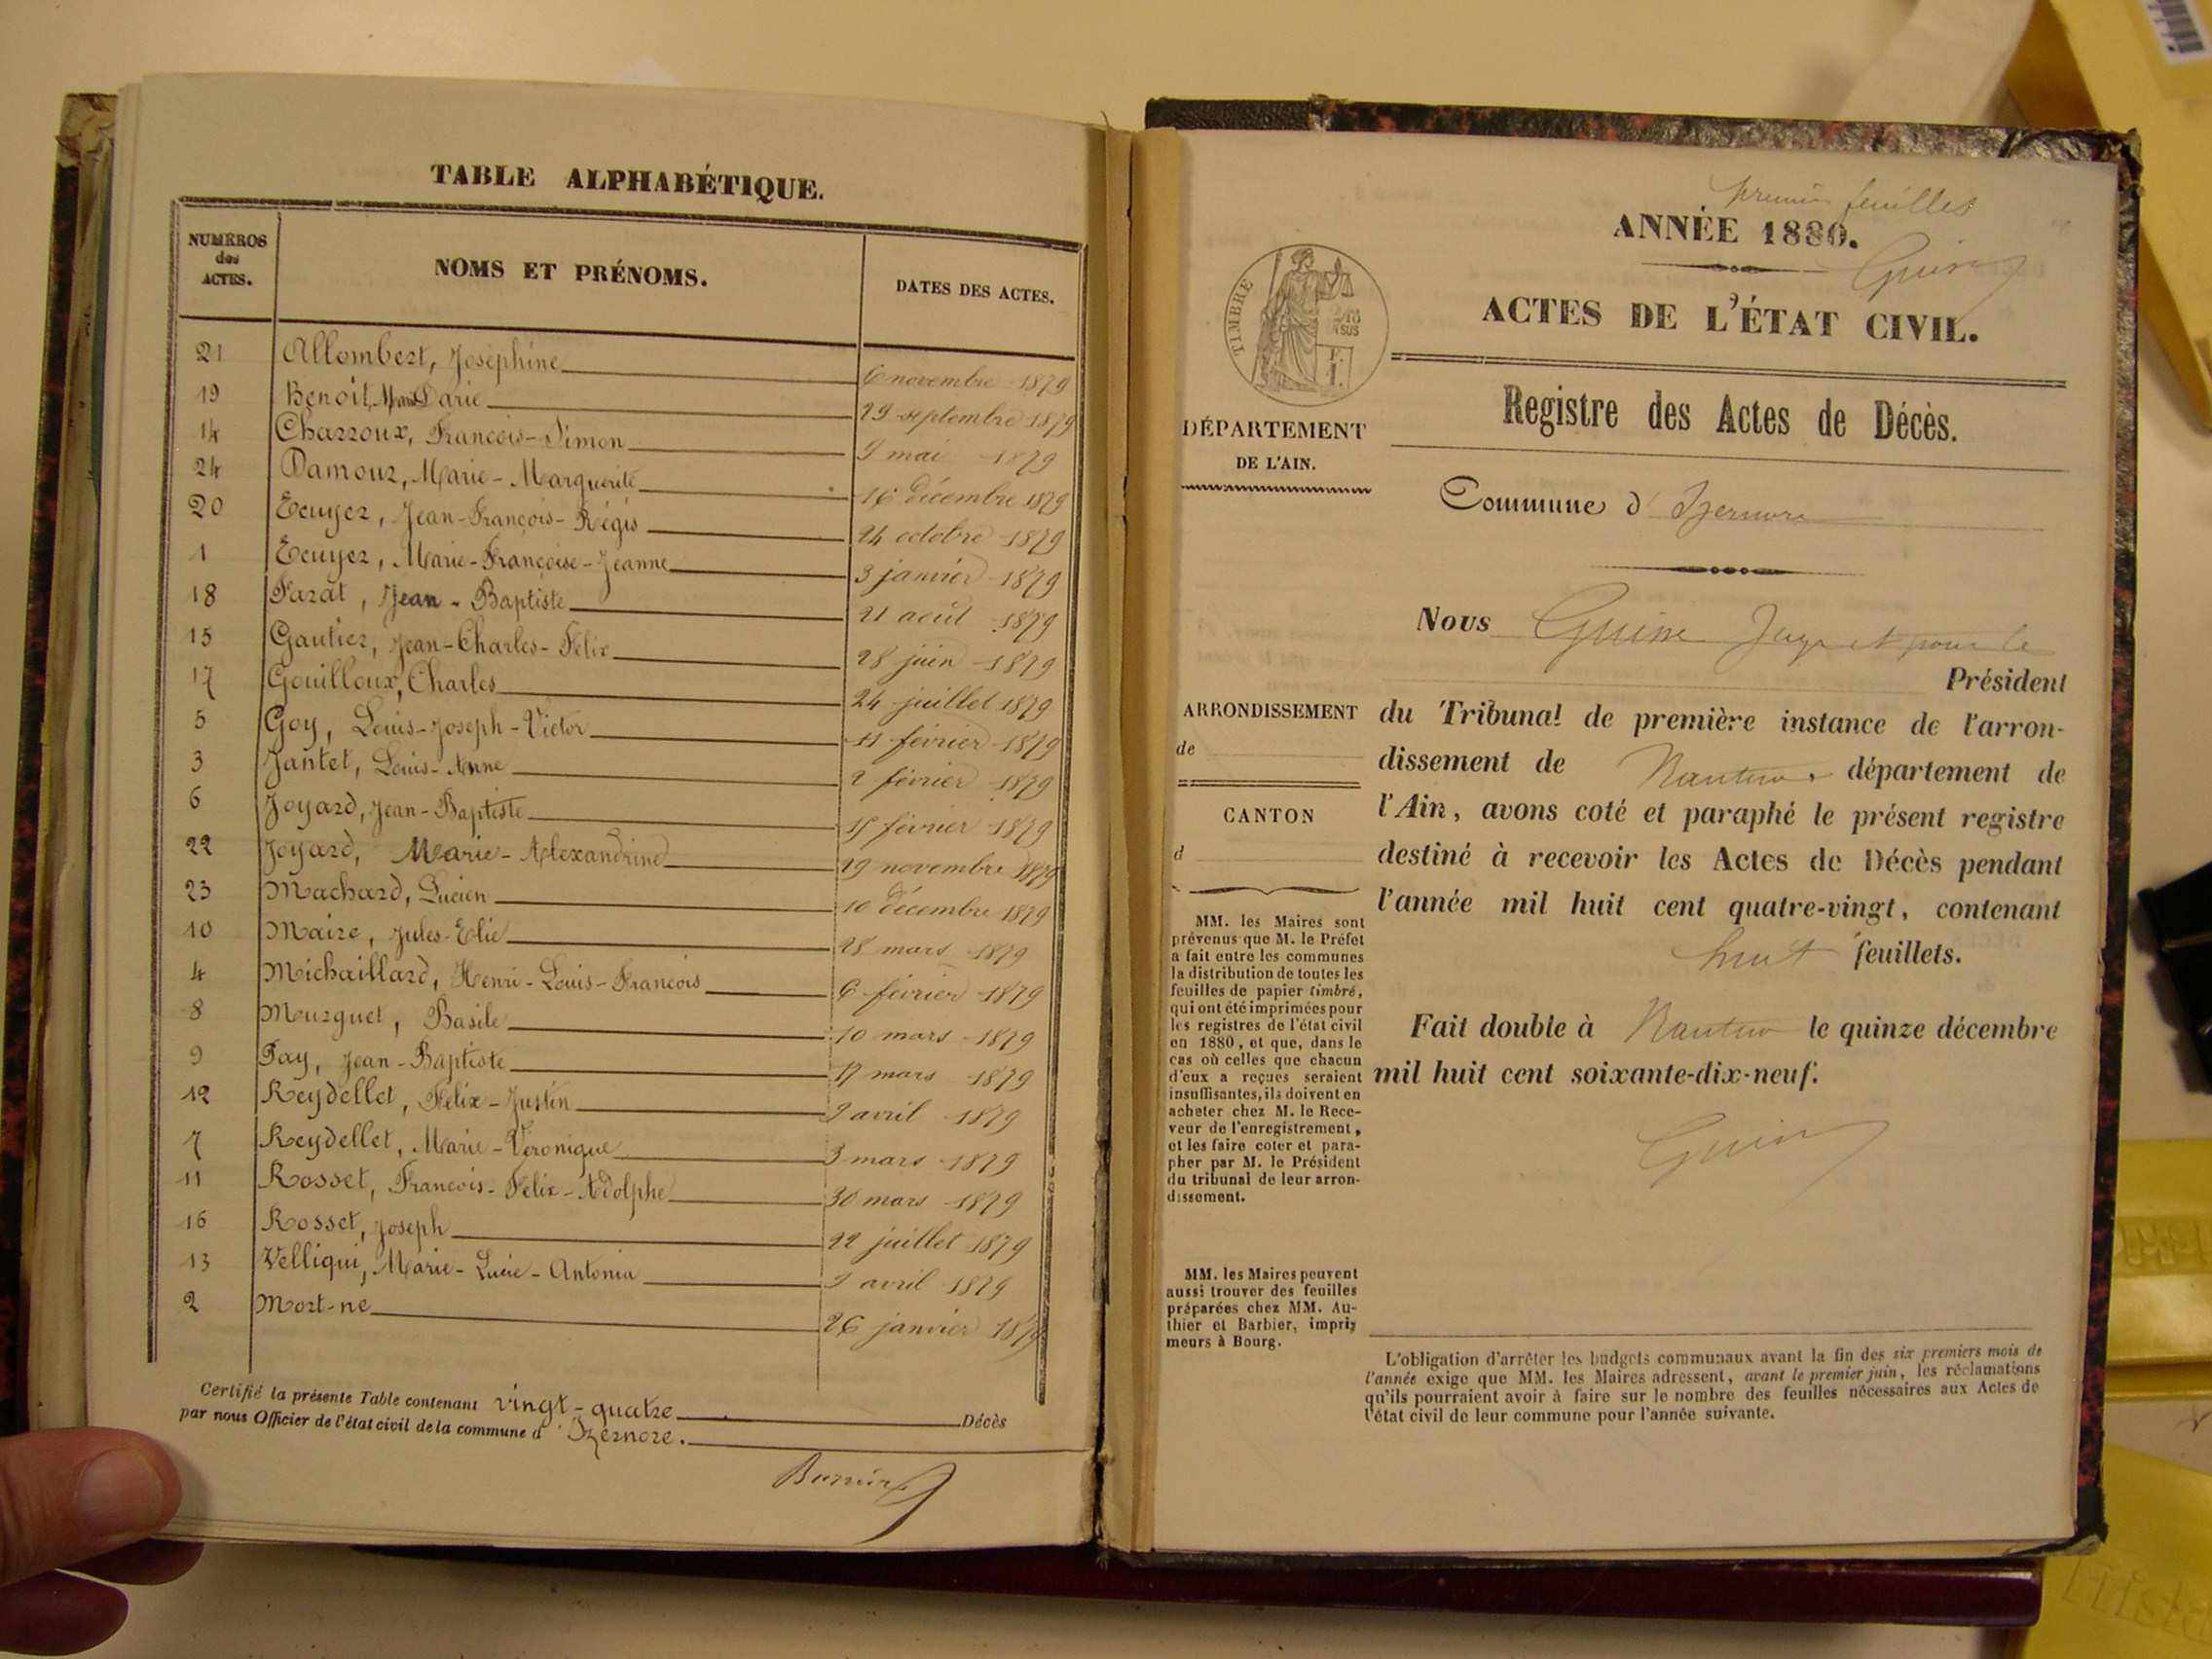 TABLE ALPHABÉTIQUE.
NUMÉROS des ACTES. NOMS ET PRÉNOMS. DATES DES ACTES.
21 Allombert, Joséphine 6 novembre 1879
19 Benoit, Darie 29 septembre 1879
14 Charroux, François-Simon 9 mai 1879
24 Damour, Marie-Marguerite 16 décembre 1879
20 Ecuyer, Jean-François-Régis 24 octobre 1879
1 Ecuyer, Marie-Françoise-Jeanne 3 janvier 1879
18 Farat, Jean-Baptiste 21 août 1879
15 Gautier, Jean-Charles-Félix 28 juin 1879
17 Gouilloux, Charles 24 juillet 1879
5 Goy, Louis-Joseph-Victor 11 février 1879
3 Jantet, Louis-Anne 2 février 1879
6 Joyard, Jean-Baptiste 15 février 1879
22 Joyard, Marie-Alexandrine 29 novembre 1879
23 Machard, Lucien 10 décembre 1879
10 Maire, Jules-Elie 28 mars 1879
4 Michaillard, Henri-Louis-François 6 février 1879
8 Murguet, Basile 10 mars 1879
9 Pay, Jean-Baptiste 17 mars 1879
12 Reydellet, Félix-Justin 9 avril 1879
7 Reydellet, Marie-Véronique 3 mars 1879
11 Rosset, François-Félix-Adolphe 30 mars 1879
16 Rosset, Joseph 22 juillet 1879
13 Velliqui, Marie-Lucie-Antonia 9 avril 1879
2 Mort-né 26 janvier 1879
Certifié la présente Table contenant vingt-quatre Décès
par nous Officier de l'état civil de la commune d'Izernore.
premier feuillet
ANNÉE 1880.
Guin
ACTES DE L'ÉTAT CIVIL.
TIMBRE
Registre des Actes de Décès.
DÉPARTEMENT
DE L'AIN.
Commune d'Izernore
Nous Juge et pour le
Président
du Tribunal de première instance de l'arron-
dissement de Nantua, département de
l'Ain, avons coté et paraphé le présent registre
destiné à recevoir les Actes de Décès pendant
l'année mil huit cent quatre-vingt, contenant
huit feuillets.
Fait double à Nantua le quinze décembre
mil huit cent soixante-dix-neuf.
Guin
ARRONDISSEMENT
de
CANTON
d
MM. les Maires sont
prévenus que M. le Préfet
a fait entre les communes
la distribution de toutes les
feuilles de papier timbré,
qui ont été imprimées pour
les registres de l'état civil
en 1880, et que, dans le
cas où celles que chacun
d'eux a reçues seraient
insuffisantes, ils doivent en
acheter chez M. le Rece-
veur de l'enregistrement,
et les faire coter et para-
pher par M. le Président
du tribunal de leur arron-
dissement.
MM. les Maires peuvent
aussi trouver des feuilles
préparées chez MM. Au-
thier et Barbier, impri-
meurs à Bourg.
L'obligation d'arrêter les budgets communaux avant la fin des six premiers mois de
l'année exige que MM. les Maires adressent, avant le premier juin, les réclamations
qu'ils pourraient avoir à faire sur le nombre des feuilles nécessaires aux Actes de
l'état civil de leur commune pour l'année suivante.